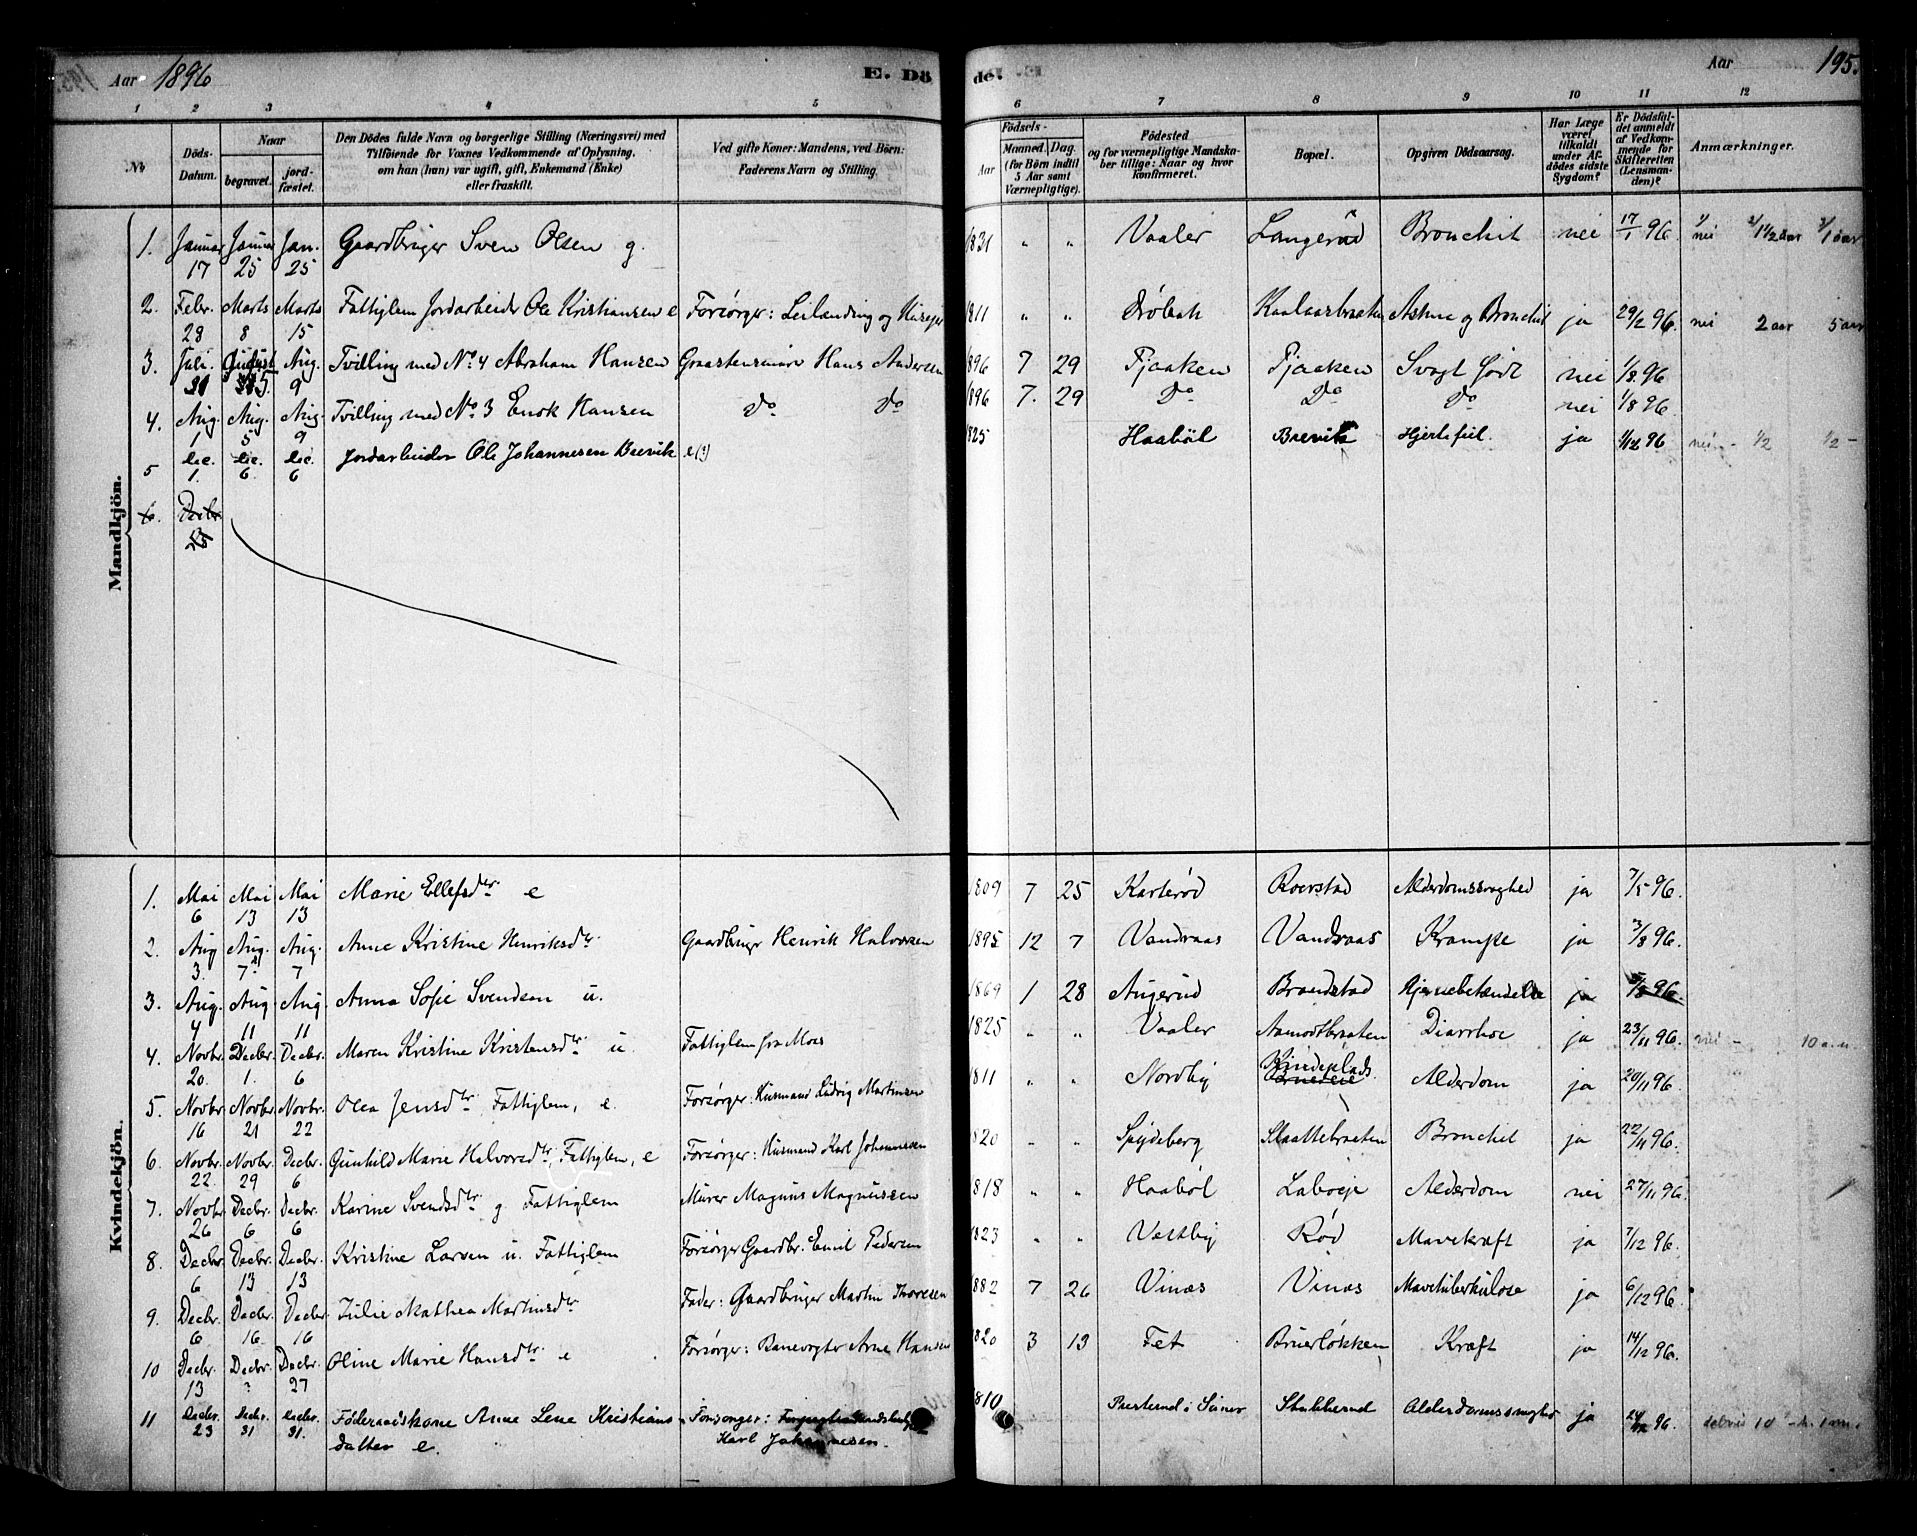 Aar 1896 E. Dö
1 2 3 4 5
No Döds-Datum. Naar begravet. jordfæstet. Den Dödes fulde Navn og borgerlige Stilling (Næringsvei) med Tilföiende for Voxnes Vedkommende af Oplysning, om han (hun) var ugift, gift, Enkemand (Enke) eller fraskilt. Ved gifte Koner: Mandens, ved Börn: Faderens Navn og Stilling.
Mandkjön.
1. Januar 17 Januar 25 Jan. 25 Gaardbruger Sven Olsen g.
2. Febr. 28 Marts 8 Marts 15 Fattiglem Jordarbeider Ole Kristiansen e Forsörger: Leilending og
3. Juli 31 August 5. Aug. 9 Tvilling med No. 4 Abraham Hansen Hans Andersen
4. Aug. 1 Aug. 5 Aug 9 Tvilling med No 3 Enok Hansen Do Do
5 Dec. 1. Dec. 6. Dec. 6 Jordarbeider Ole Johannesen Brevik e(?)
6. Decbr.
Kvindekjön.
1. Mai 6 Mai 13 Mai 13 Marie Ellefsdtr e
2. Aug 3. Aug. 7 Aug. 7 Anne Kristine Henriksdtr. Gaardbruger Henrik Halvorsen
3. Aug. 4 Aug 11 Aug 11 Anna Sofie Svendsen u.
4. Novbr. 20. Decbr. 1. Decbr. 6 Maren Kristine Kristensdtr u Fattiglem fra Moss
5. Novbr. 16 Novbr. 21 Novbr. 22 Olea Jensdtr, Fattiglem, e. Forsörger: Husmand Ludvig Martinsen
6. Novbr. 22. Novbr. 29 Decbr. 6 Gunhild Marie Halvorsdtr, Fattiglem, e Forsörger: Husmand Karl Johannesen
7. Novbr. 26 Decbr. 6 Decbr. 6 Karine Svendsdtr g. Fattiglem Murer Magnus Magnussen
8. Decbr. 6 Decbr. 13 Decbr. 13 Kristine Larsen u. Fattiglem Forsörger Gaardbr. Emil Pedersen
9. Decbr. 6 Decbr. 16 Decbr. 16 Julie Mathea Martinsdtr Fader: Gaardbruger Martin Thoresen
10 Decbr. 13 Decbr. ? Decbr. 27 Oline Marie Hansdtr. e Forsörger: Banevogter Arne Hansen
11 Decbr. 23 Decbr. 31 Decbr. 31. Föderaadskone Anne Lene Kristians- Forsorger:
datter e. Karl Johannesen.
de. Aar 195.
6 7 8 9 10 11 12
Födsels- Aar Maaned. Dag. (for Börn indtil 5 Aar samt Værnepligtige). Födested og for værnepligtige Mandskaber tillige: Naar og hvor konfirmeret. Bopæl. Opgiven Dödsaarsag. Har Læge været tilkaldt under Afdödes sidste Sygdom? Er Dödsfaldet anmeldt af Vedkommende for Skifteretten (Lensmanden)? Anmærkninger.
1831 " " Vaaler Langerud Bronchit nei 17/1 96. 1/ nei 2/ 1 1/2 aar 3/ 1 aar
1811 " " Dröbak Astma og Bronchit ja 29/2 96. nei 2 aar 5 aar
1896 7 29 Fjaaken Fjaaken Svagt född nei 1/8 96
1896 7. 29 Do Do Do nei 1/8 96
1825 Haaböl Brevik Hjertefeil. ja 1/12 96 nei - 1/2 1/2 -
1809 7 25 Karteröd Roerstad Alderdomssvaghed ja 7/5 96.
1895 12 7 Vandraas Vandraas Krampe ja 3/8 96.
1869 1 28 Augerud Brandstad Hjernebetændelse ja 5/8 96.
1825 " " Vaaler Aamodtbraaten Diarrhoe ja 23/11 96. nei -
1811 " " Nordby Alderdom ja 20/11 96.
1820 " " Spydeberg Slaattebraaten Bronchit ja 22/11 96.
1818 " " Haaböl Laboeje Alderdom nei 27/11 96.
1823 " " Vestby Röd Mavekræft ja 7/12 96.
1882 7 26 Vinæs Vinæs Mavetuberkulose ja 6/12 96.
1820 3 13 Fet Bruerløkken Kræft ja 14/12 96.
1810 Presterud i Stubberud Alderdomssvaghed ja 24/12 96.